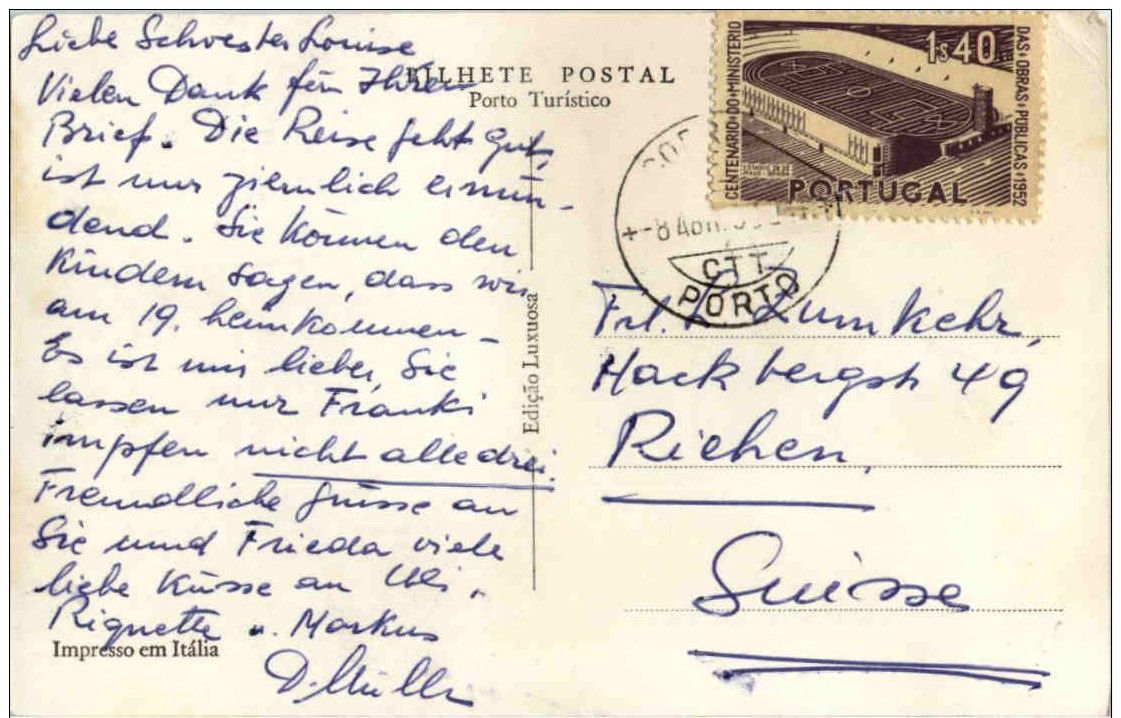 Liebe Schwester Louise
Vielen Dank für Ihren
Brief. Die Reise geht gut,
ist nur ziemlich ermü-
dend. Sie können den
Kindern sagen, dass wir
am 19. heimkommen –
Es ist mir lieber, Sie
lassen nur Franki
impfen nicht alle drei.
Freundliche Grüsse an
Sie und Frieda viele
liebe Küsse an Uli,
Riquette u. Markus
D. Müller
BILHETE POSTAL
Porto Turístico
Edição Luxuosa
Impresso em Itália
CENTENÁRIO DO MINISTÉRIO
DAS OBRAS PÚBLICAS 1952
1$40
PORTUGAL
CTT
PORTO
Frl. L. Zumkehr,
Hackbergstr 49
Riehen,
Suisse